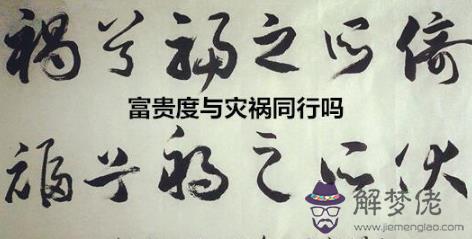 祸兮福之所倚
富贵度与灾祸同行吗
福兮祸之所伏
解梦佬
www.jiemenglao.com